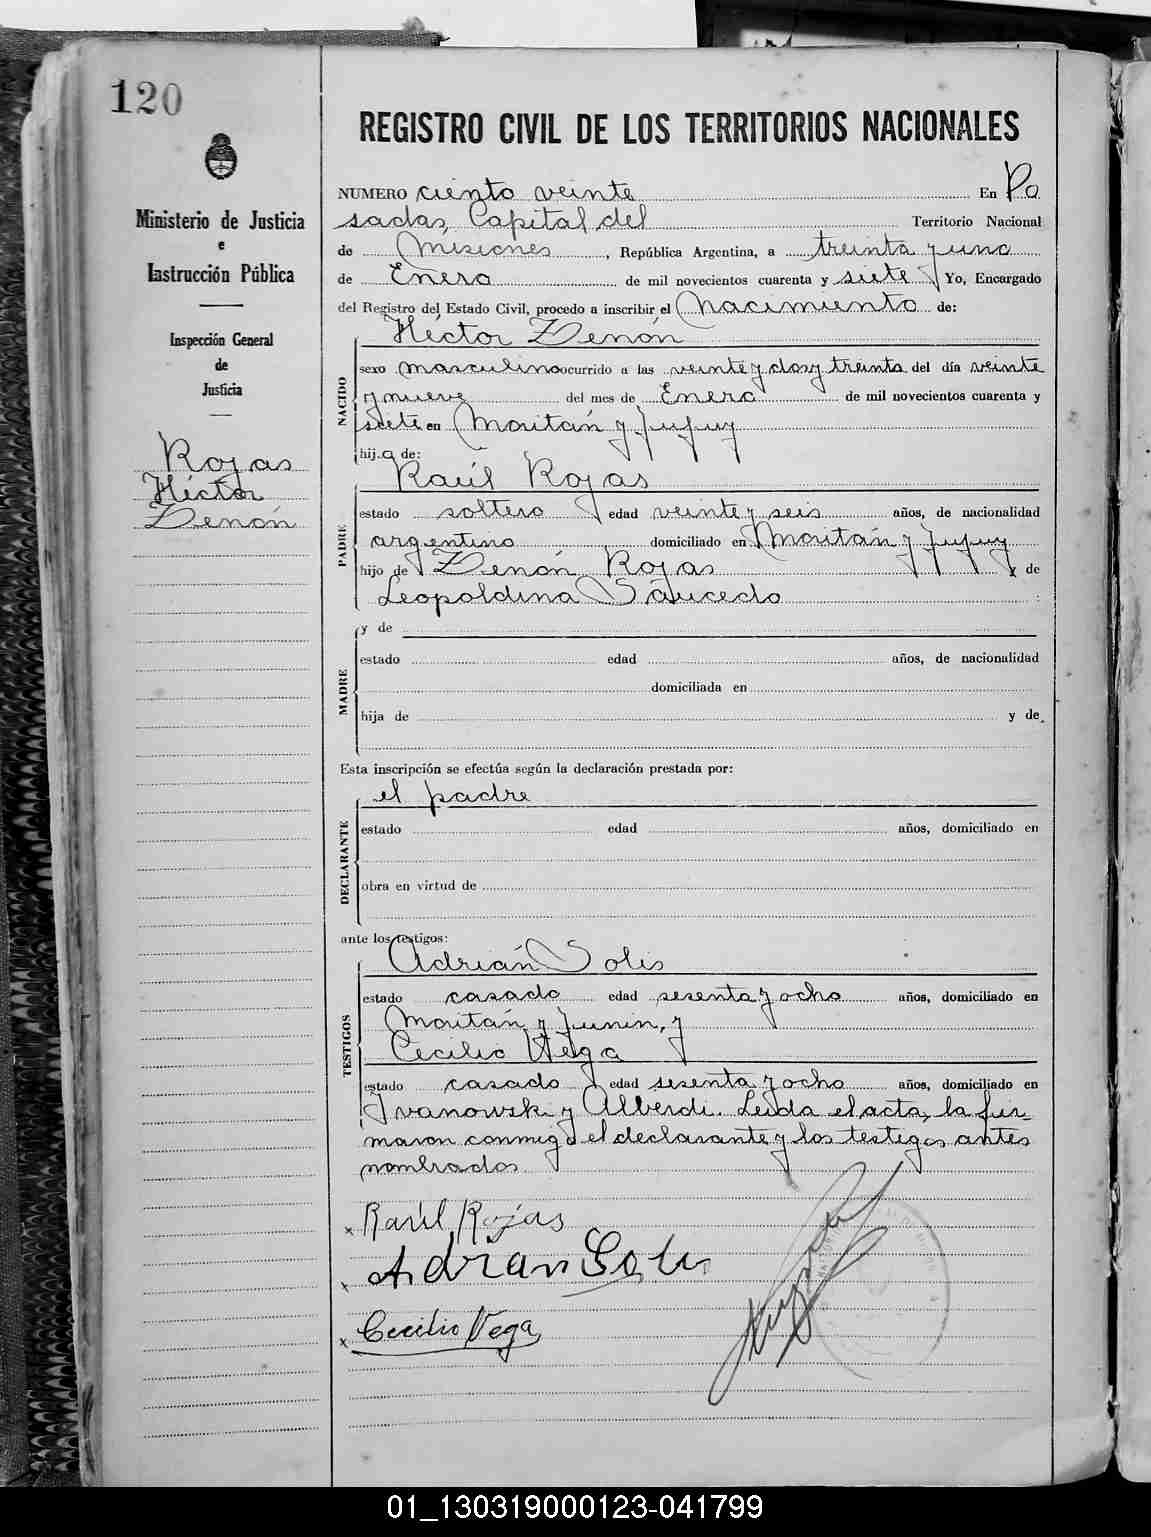 120
Ministerio de Justicia
e
Instrucción Pública
Inspección General
de
Justicia
Rojas
Héctor
Zenón
REGISTRO CIVIL DE LOS TERRITORIOS NACIONALES
NUMERO ciento veinte En Po
sadas, Capital del Territorio Nacional
de Misiones, República Argentina, a treinta y uno
de Enero de mil novecientos cuarenta y siete Yo, Encargado
del Registro del Estado Civil, procedo a inscribir el Nacimiento de:
NACIDO
Héctor Zenón
sexo masculino ocurrido a las veinte y dos y treinta del día veinte
y nueve del mes de Enero de mil novecientos cuarenta y
siete en Moritán y Jujuy
hijo de:
PADRE
Raúl Rojas
estado soltero edad veinte y seis años, de nacionalidad
argentino domiciliado en Moritán y Jujuy
hijo de Zenón Rojas y de
Leopoldina Saucedo
MADRE
y de
estado edad años, de nacionalidad
domiciliada en
hija de y de
Esta inscripción se efectúa según la declaración prestada por:
DECLARANTE
el padre
estado edad años, domiciliado en
obra en virtud de
ante los testigos:
TESTIGOS
Adrián Solis
estado casado edad sesenta y ocho años, domiciliado en
Moritán y Junin, y
Cecilio Vega
estado casado edad sesenta y ocho años, domiciliado en
Ivanowski y Alberdi. Leida el acta, la fir-
maron conmigo el declarante y los testigos antes
nombrados
x Raúl Rojas
x Adrian Solis
x Cecilio Vega
01_130319000123-041799